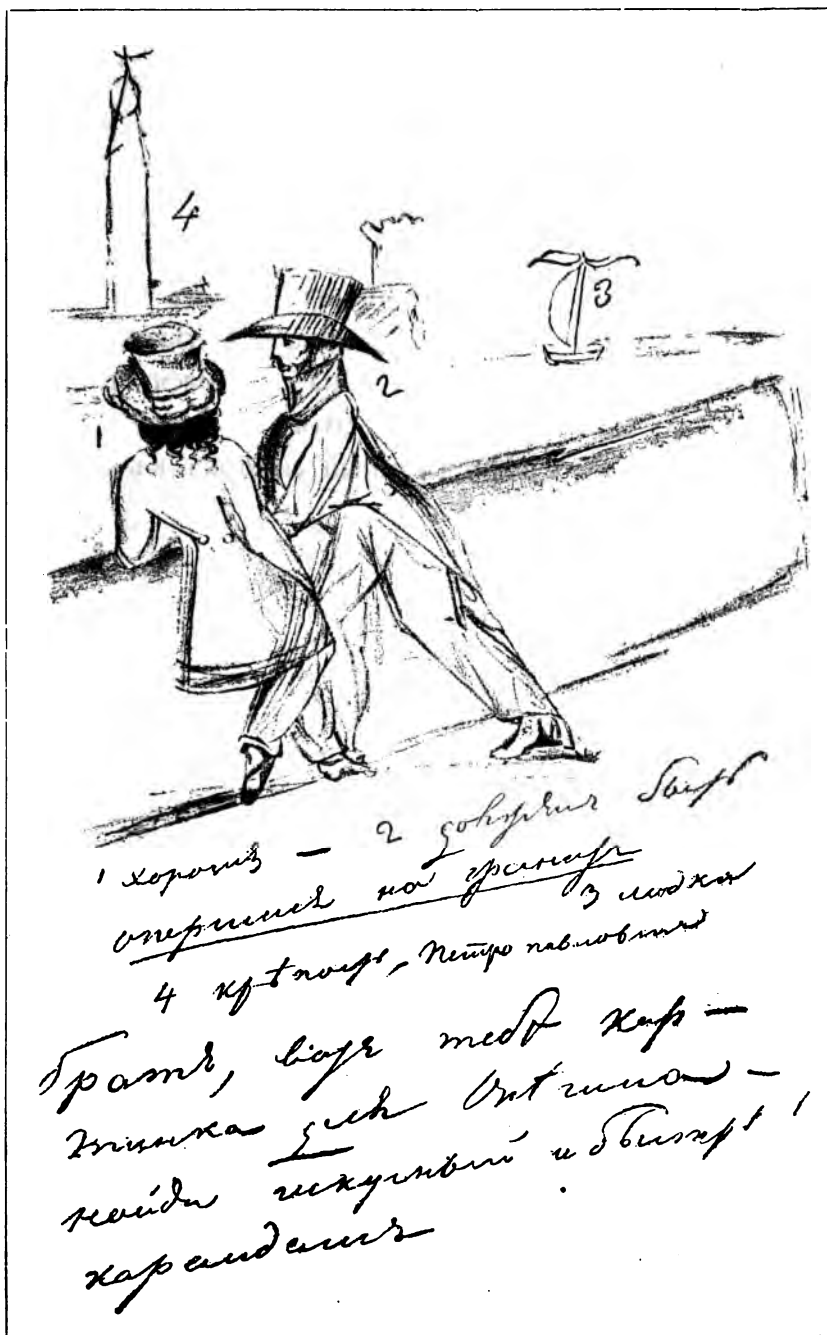 4
3
2
1
1 хорошъ — 2 долженъ быть
опершися на гранитъ
3 лодка
4 крѣпость, Петропавловская
Братъ, вотъ тебѣ кар—
тинка для Онѣгина —
найди искусный и быстрый
карандашъ